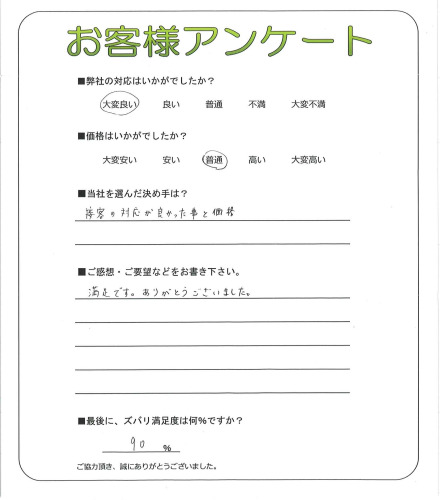 お客様アンケート
■弊社の対応はいかがでしたか？
大変良い 良い 普通 不満 大変不満
■価格はいかがでしたか？
大変安い 安い 普通 高い 大変高い
■当社を選んだ決め手は？
接客の対応が良かった事と価格
■ご感想・ご要望などをお書き下さい。
満足です。ありがとうございました。
■最後に、ズバリ満足度は何%ですか？
90 %
ご協力頂き、誠にありがとうございました。